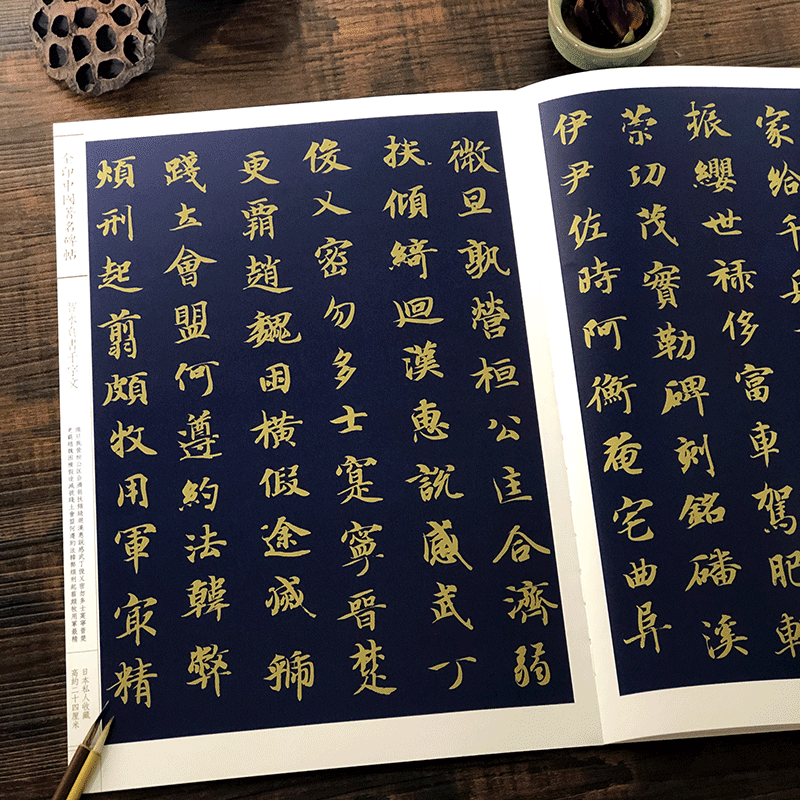 家給千兵
振纓世祿侈富車駕肥輕
策功茂實勒碑刻銘磻溪
伊尹佐時阿衡奄宅曲阜
微旦孰營桓公匡合濟弱
扶傾綺迴漢惠說感武丁
俊乂密勿多士寔寧晉楚
更霸趙魏困橫假途滅虢
踐土會盟何遵約法韓弊
煩刑起翦頗牧用軍最精
全印中國著名碑帖
智永真書千字文
日本私人收藏
高約二十四厘米